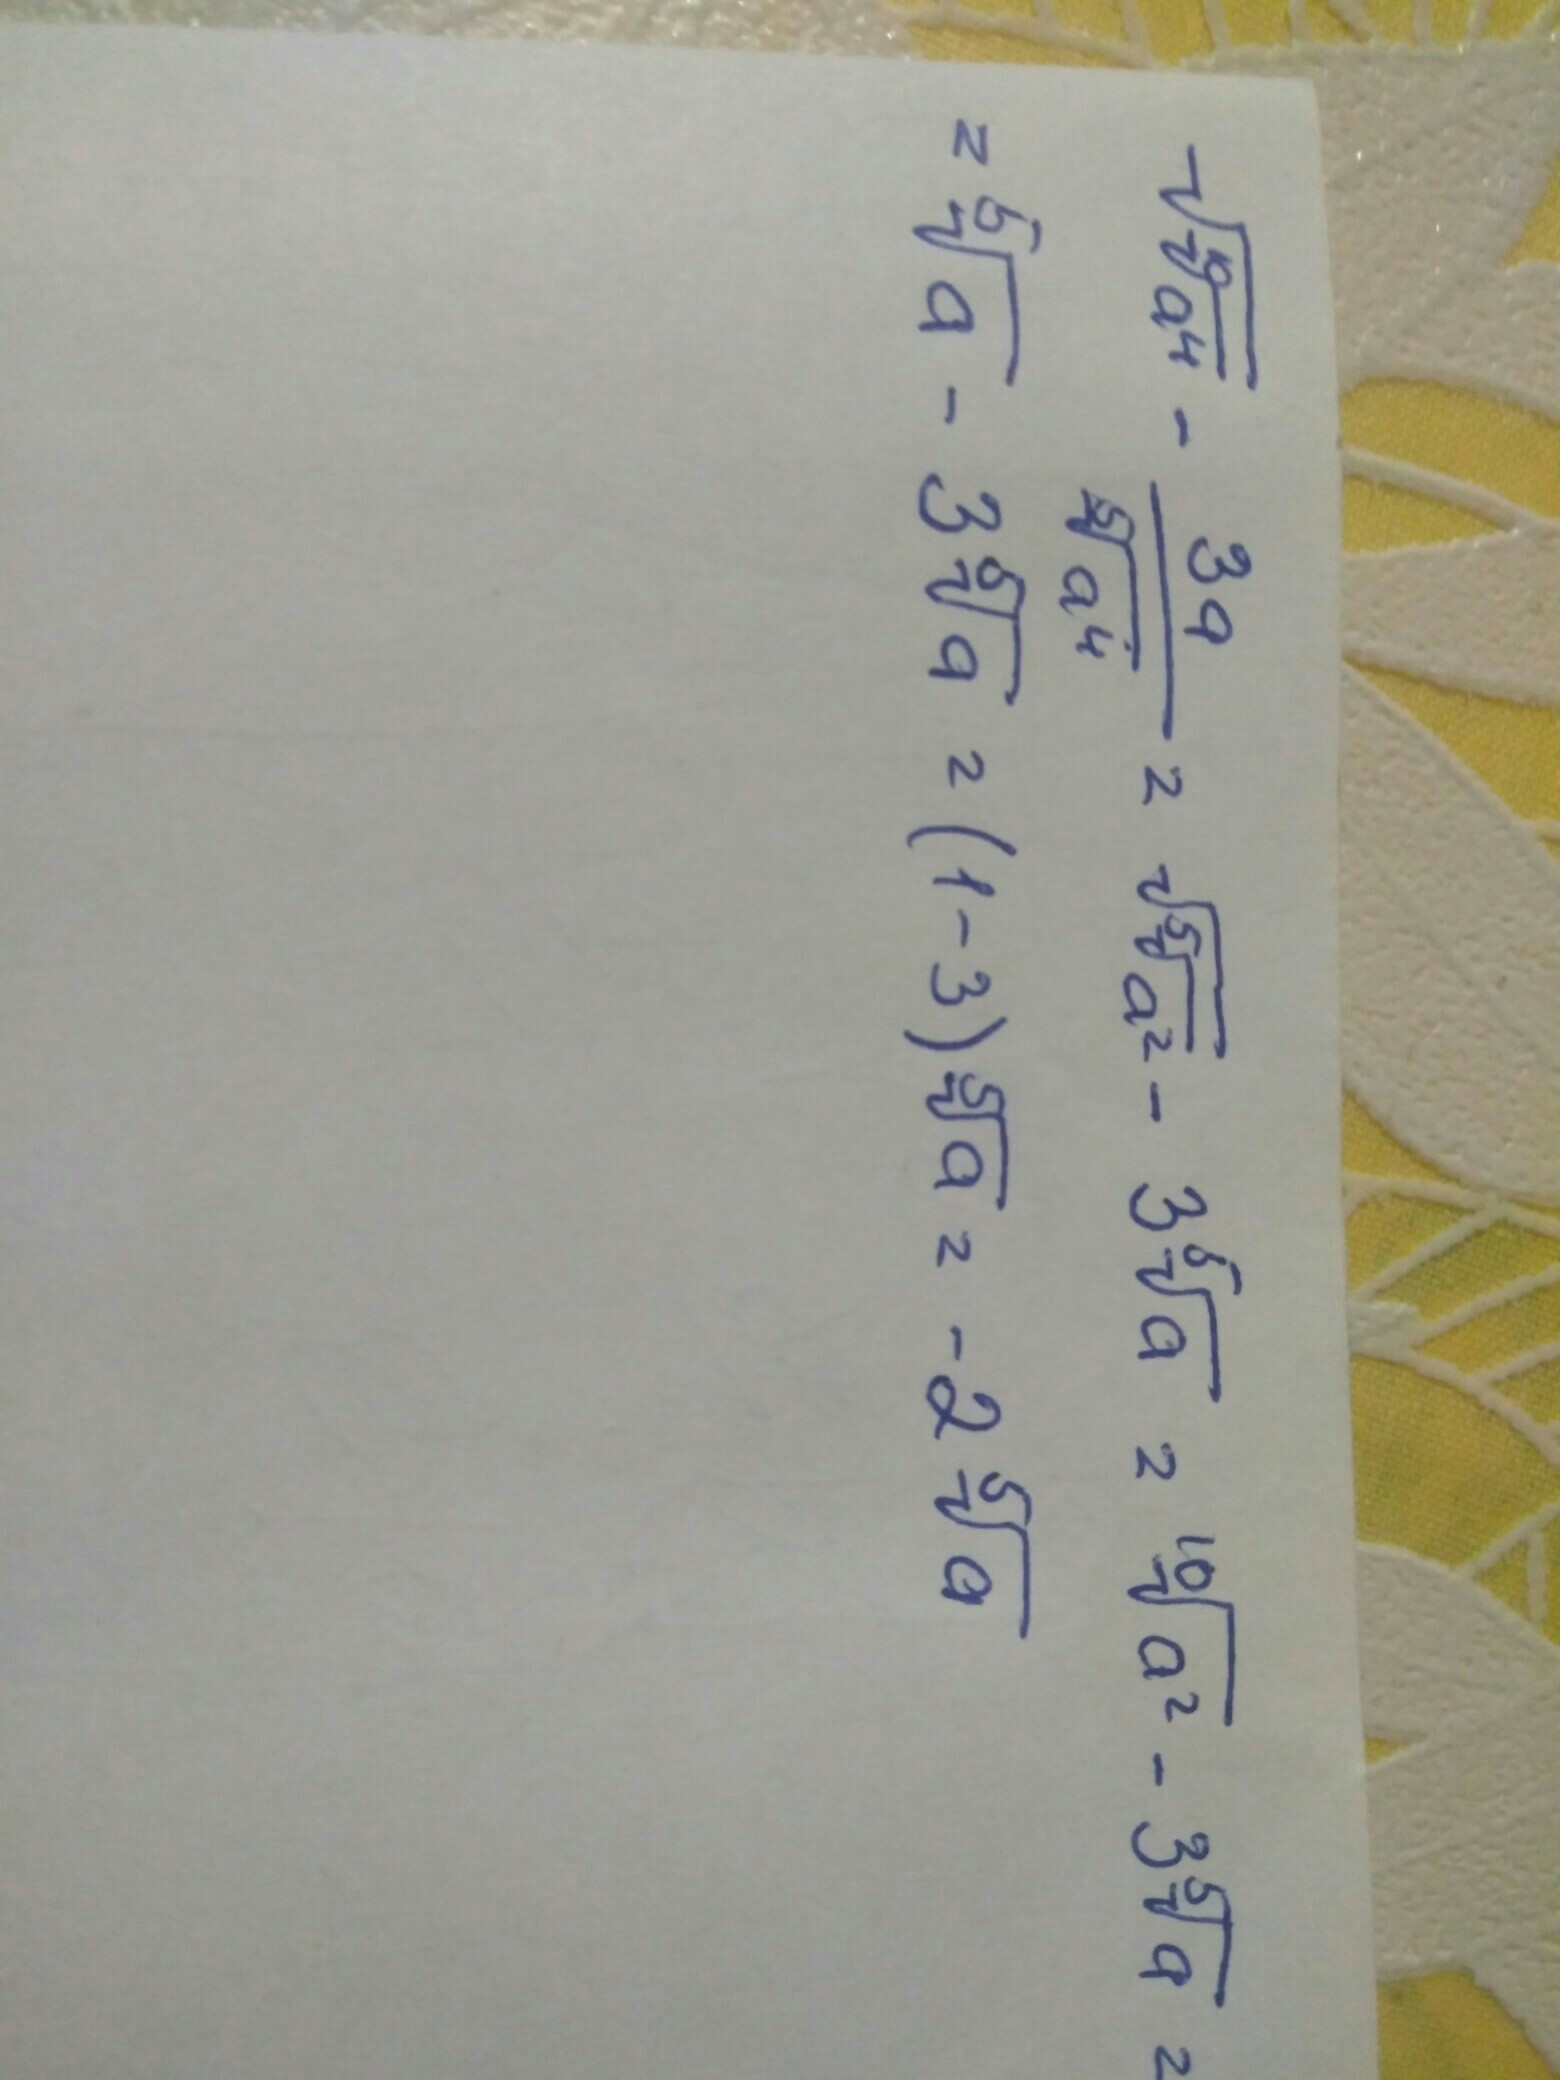 √(¹⁰√a⁴) - 3a/⁵√a⁴ = √(⁵√a²) - 3⁵√a = ¹⁰√a² - 3⁵√a =
= ⁵√a - 3⁵√a = (1-3)⁵√a = -2⁵√a